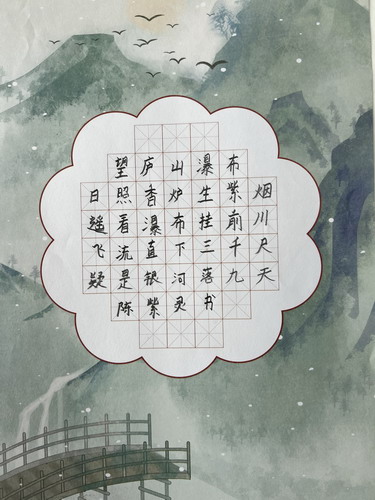 望庐山瀑布
日照香炉生紫烟
遥看瀑布挂前川
飞流直下三千尺
疑是银河落九天
陈紫灵书